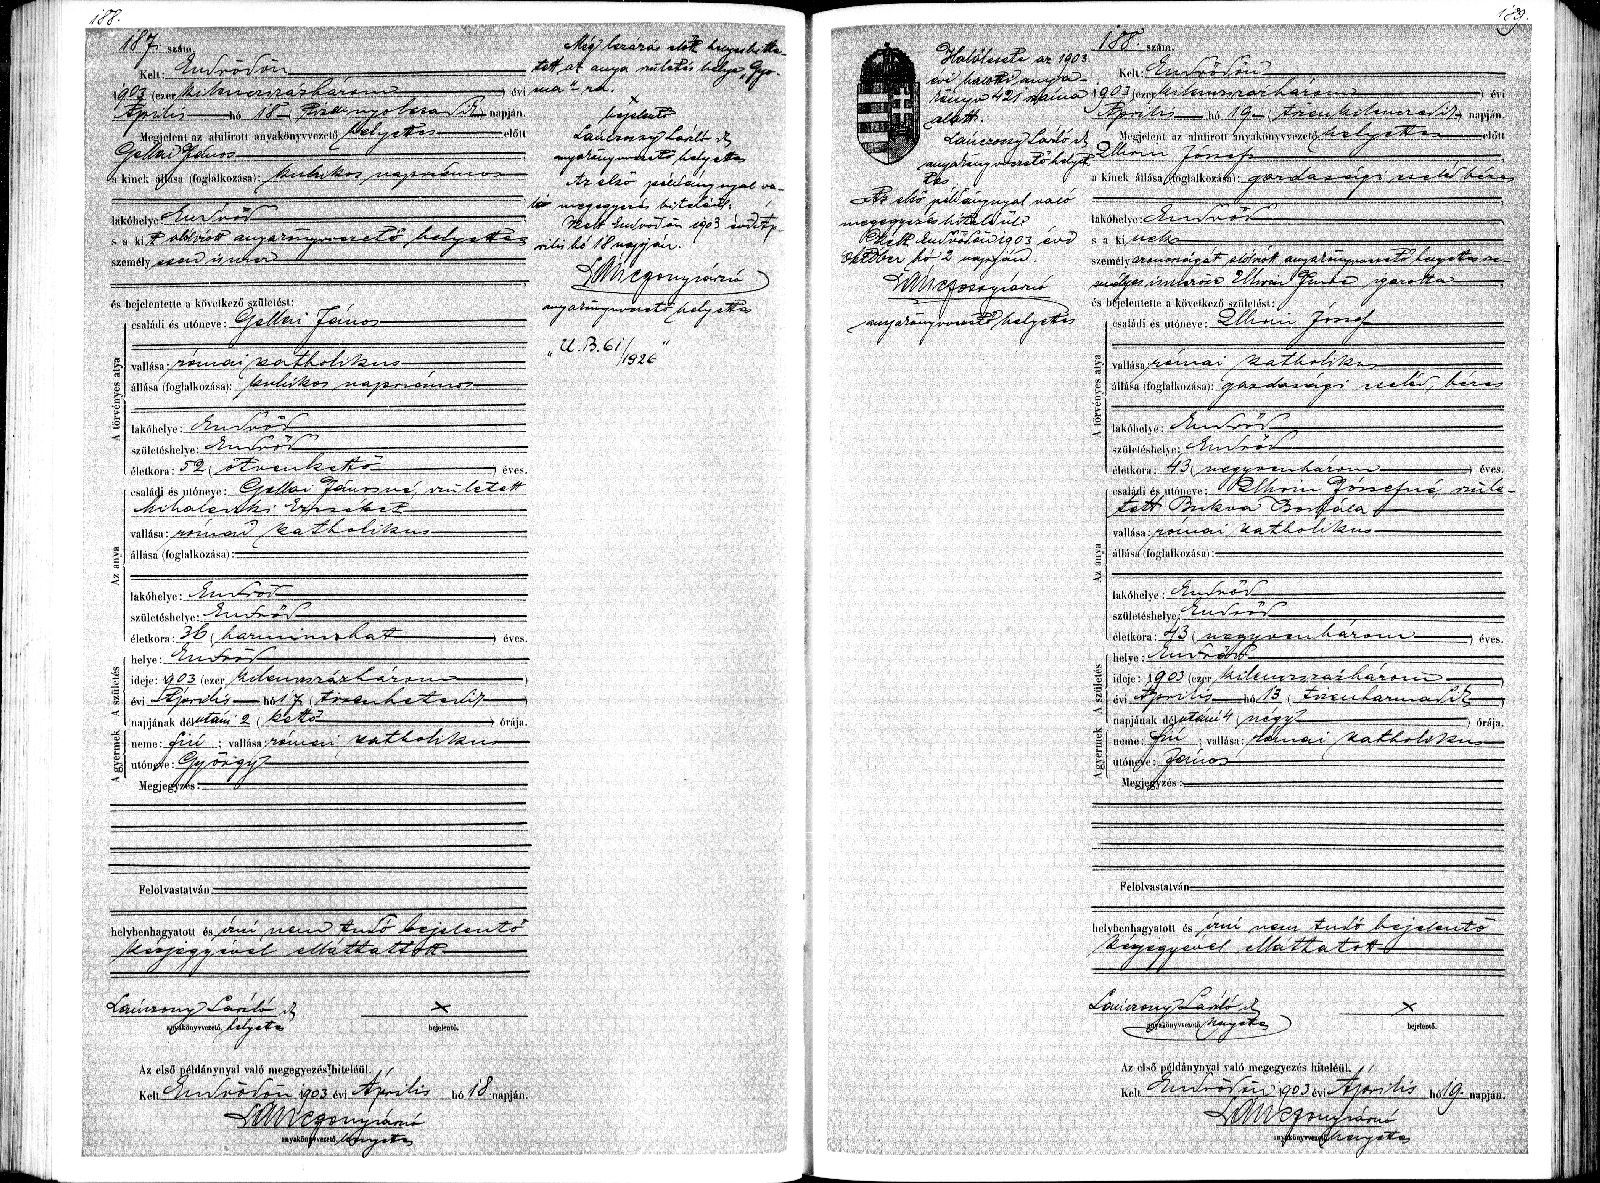 188.
187. szám.
Kelt: Endrődön
1903 (ezer kilencszázhárom) évi
Április hó 18 (tizennyolcadik) napján.
Megjelent az alulirott anyakönyvvezető helyettes előtt
Gellai János
a kinek állása (foglalkozása): kubikos napszámos
lakóhelye: Endrőd
s a kit alulírott anyakönyvvezető helyettes
személyesen ismer
és bejelentette a következő születést:
A törvényes atya
családi és utóneve: Gellai János
vallása: római katholikus
állása (foglalkozása): kubikos napszámos
lakóhelye: Endrőd
születéshelye: Endrőd
életkora: 52 (ötvenkettő) éves.
Az anya
családi és utóneve: Gellai Jánosné, született
Mihalenki Erzsébet
vallása: római katholikus
állása (foglalkozása):
lakóhelye: Endrőd
születéshelye: Endrőd
életkora: 36 (harminchat) éves.
A születés
helye: Endrőd
ideje: 1903 (ezer kilencszázhárom)
évi Április hó 17 (tizenhetedik)
napjának délutáni 2 (kettő) órája.
A gyermek
neme: fiú; vallása: római katholikus
utóneve: György
Megjegyzés:
Felolvastatván
helybenhagyatott és írni nem tudó bejelentő
kézjegyével elláttatott
Lánczony László
anyakönyvvezető helyettes
x
bejelentő.
Az első példánynyal való megegyezés hiteléül.
Kelt Endrődön 1903 évi Április hó 18 napján.
anyakönyvvezető helyettes
Még lezárás előtt helyesbítte-
tett az anya születés helye Gyo-
ma
x
bejelentő
Lánczony László
anyakönyvvezető helyettes
Az első példánynyal va-
ló megegyezés hiteléül.
Kelt Endrődön 1903 évi Áp-
rilis hó 18 napján.
anyakönyvvezető helyettes
"U.B.61/1926"
189.
Halálesete az 1903
évi halotti anya-
könyv 421 száma
alatt.
Lánczony László
anyakönyvvezető helyet-
tes
Az első példánynyal való
megegyezés hiteléül.
Kelt Endrődön 1903 évi
október hó 2 napján.
anyakönyvvezető helyettes
188. szám.
Kelt: Endrődön
1903 (ezer kilencszázhárom) évi
Április hó 19 (tizenkilencedik) napján.
Megjelent az alulirott anyakönyvvezető helyettes előtt
József
a kinek állása (foglalkozása): gazdasági cseléd béres
lakóhelye: Endrőd
s a kinek
személyazonosságát előttök anyakönyvvezető helyettes sze-
mélyes ismerőse igazolta
és bejelentette a következő születést:
A törvényes atya
családi és utóneve: József
vallása: római katholikus
állása (foglalkozása): gazdasági cseléd, béres
lakóhelye: Endrőd
születéshelye: Endrőd
életkora: 43 (negyvenhárom) éves.
Az anya
családi és utóneve: Józsefné szüle-
tett Bukva Borbála
vallása: római katholikus
állása (foglalkozása):
lakóhelye: Endrőd
születéshelye: Endrőd
életkora: 43 (negyvenhárom) éves.
A születés
helye: Endrőd
ideje: 1903 (ezer kilencszázhárom)
évi Április hó 13 (tizenharmadik)
napjának délutáni 4 (négy) órája.
A gyermek
neme: fiú; vallása: római katholikus
utóneve: János
Megjegyzés:
Felolvastatván
helybenhagyatott és írni nem tudó bejelentő
kézjegyével elláttatott
Lánczony László
anyakönyvvezető helyettes
x
bejelentő.
Az első példánynyal való megegyezés hiteléül.
Kelt Endrődön 1903 évi Április hó 19. napján.
anyakönyvvezető helyettes